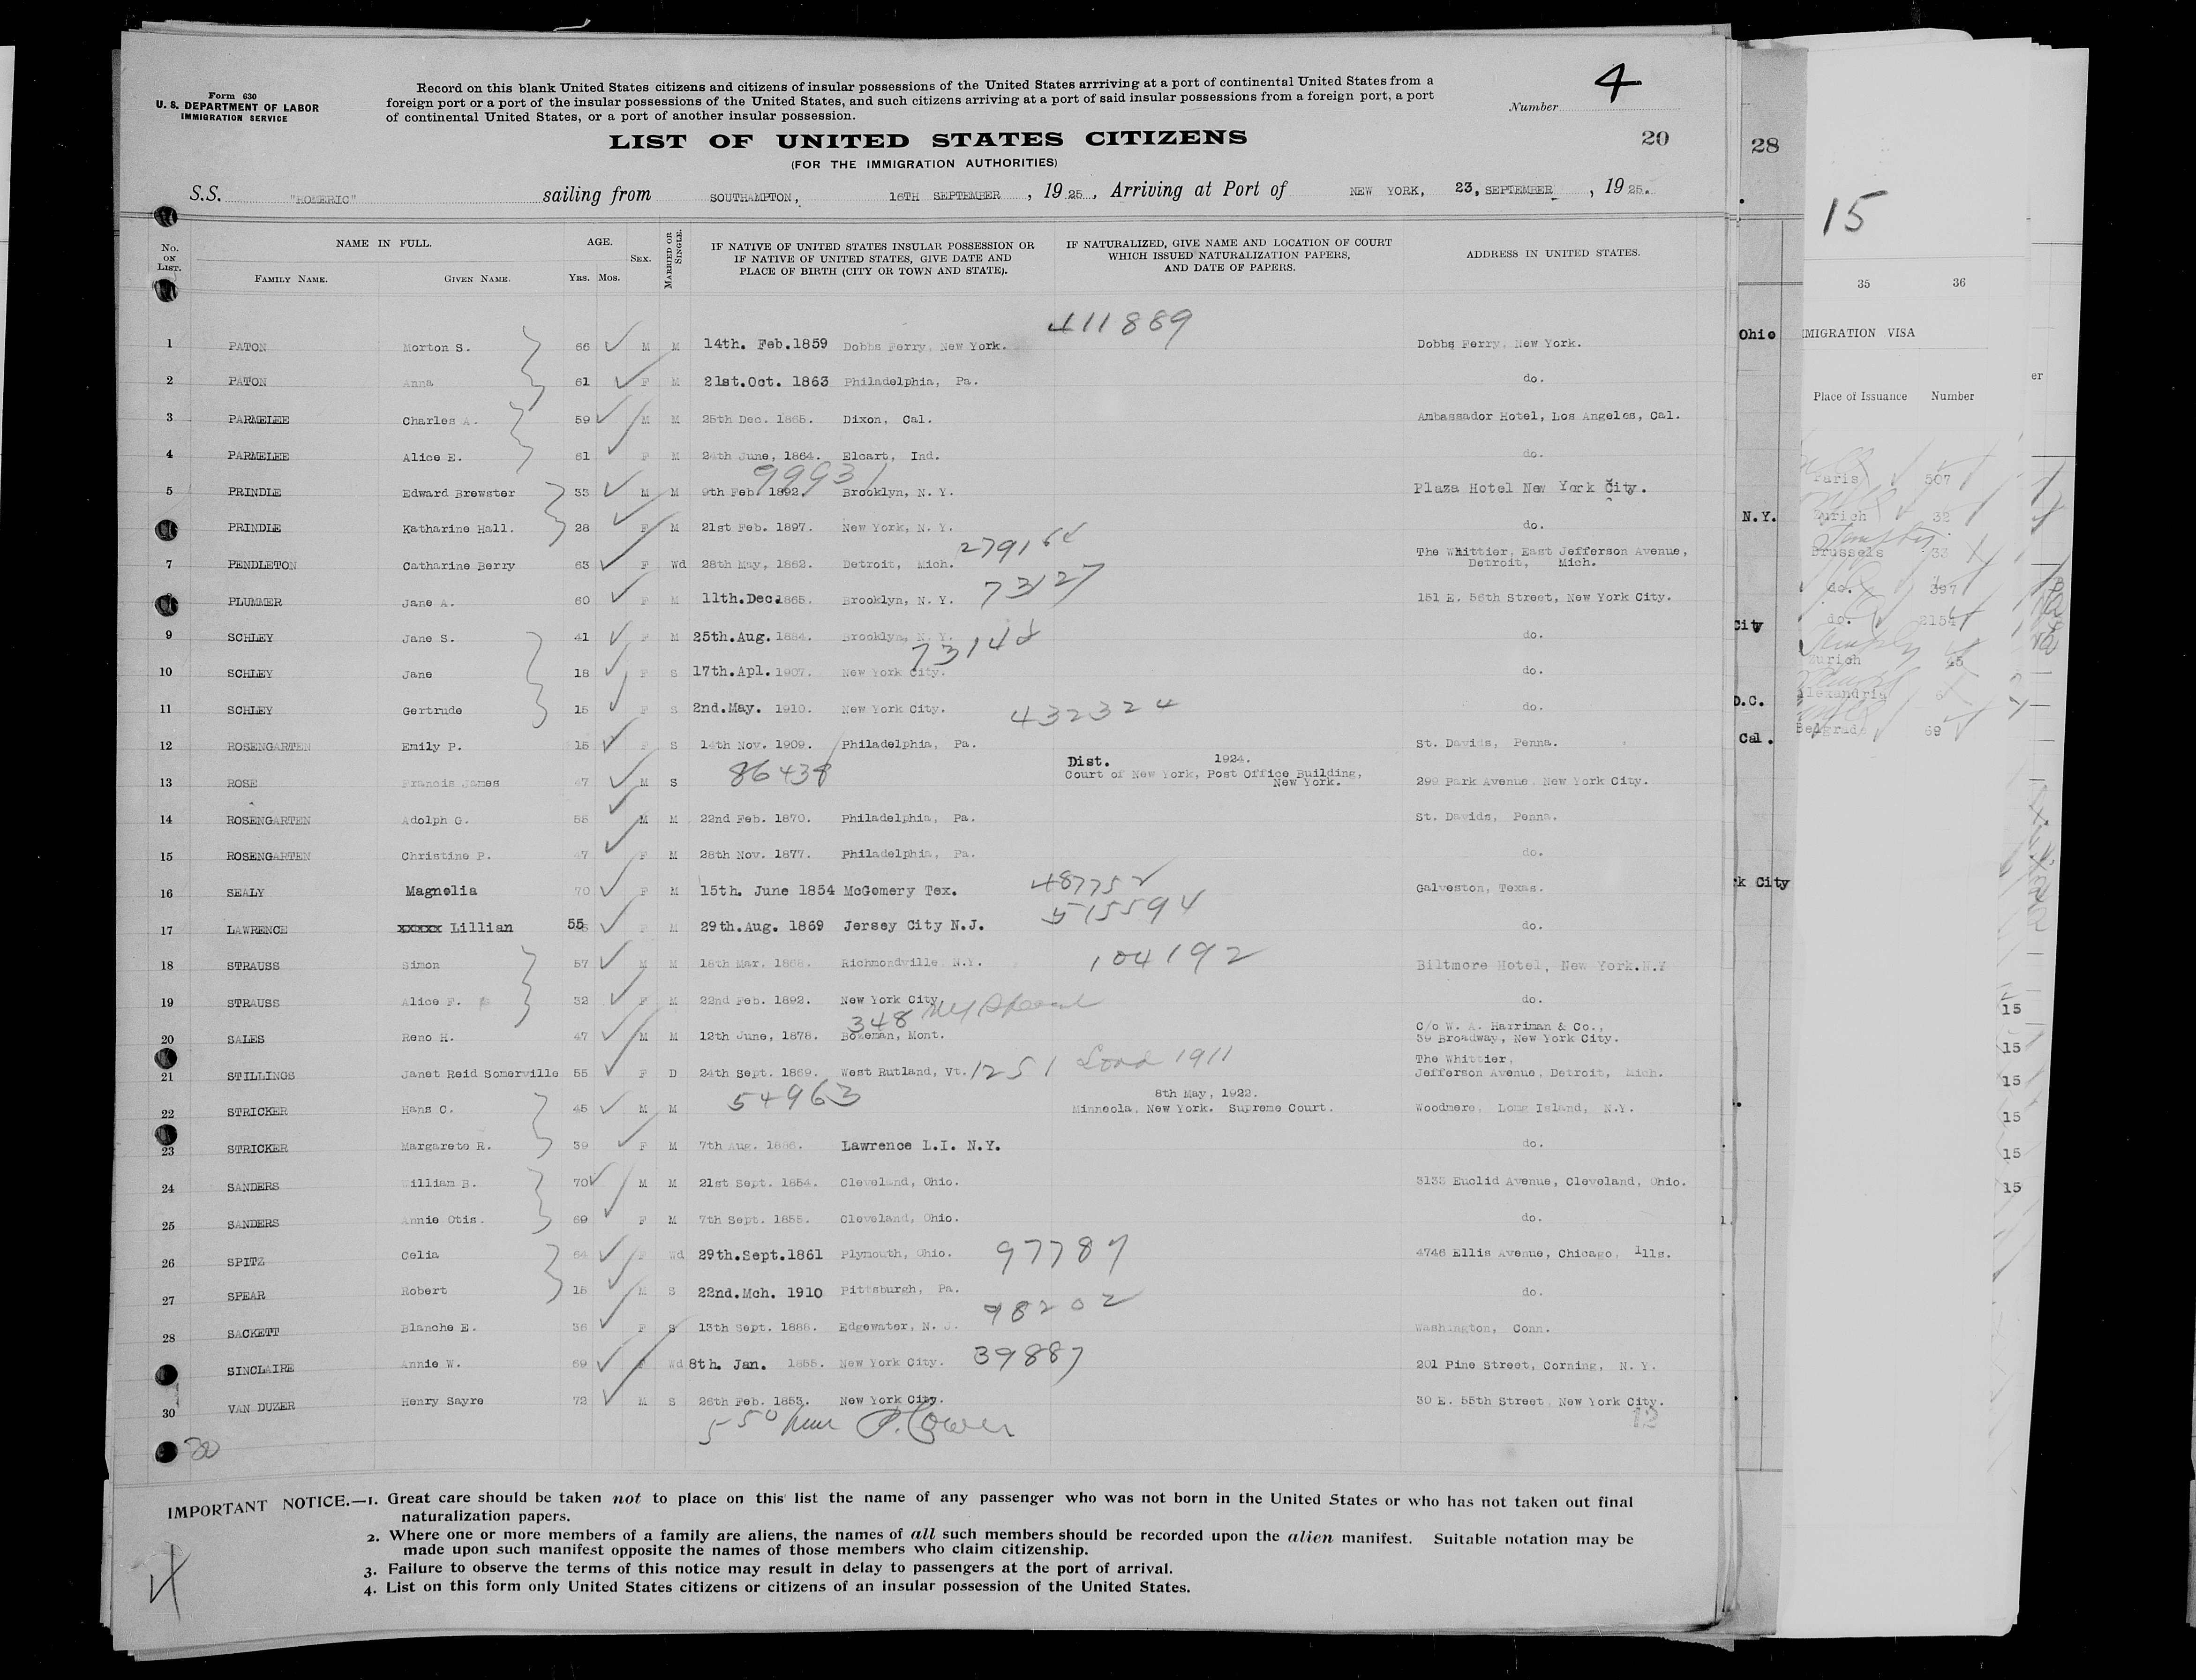 Form 630
U. S. DEPARTMENT OF LABOR
IMMIGRATION SERVICE
Record on this blank United States citizens and citizens of insular possessions of the United States arrriving at a port of continental United States from a
foreign port or a port of the insular possessions of the United States, and such citizens arriving at a port of said insular possessions from a foreign port, a port
of continental United States, or a port of another insular possession.
Number 4
LIST OF UNITED STATES CITIZENS
20
(FOR THE IMMIGRATION AUTHORITIES)
S.S. "HOMERIC" sailing from SOUTHAMPTON, 16TH SEPTEMBER, 1925, Arriving at Port of NEW YORK, 23, SEPTEMBER, 1925.
No. ON LIST. NAME IN FULL. FAMILY NAME. GIVEN NAME. AGE. YRS. MOS. SEX. MARRIED OR SINGLE. IF NATIVE OF UNITED STATES INSULAR POSSESSION OR IF NATIVE OF UNITED STATES, GIVE DATE AND PLACE OF BIRTH (CITY OR TOWN AND STATE). IF NATURALIZED, GIVE NAME AND LOCATION OF COURT WHICH ISSUED NATURALIZATION PAPERS, AND DATE OF PAPERS. ADDRESS IN UNITED STATES.
411889
1 PATON Morton S. 66 M M 14th. Feb.1859 Dobbs Ferry, New York. Dobbs Ferry, New York.
2 PATON Anna 61 F M 21st.Oct. 1863 Philadelphia, Pa. do.
3 PARMELEE Charles A. 59 M M 25th Dec. 1865. Dixon, Cal. Ambassador Hotel, Los Angeles, Cal.
4 PARMELEE Alice E. 61 F M 24th June, 1864. Elcart, Ind. do.
99931
5 PRINDLE Edward Brewster 33 M M 9th Feb. 1892. Brooklyn, N. Y. Plaza Hotel New York City.
PRINDLE Katharine Hall. 28 F M 21st Feb. 1897. New York, N. Y. do.
279164
7 PENDLETON Catharine Berry 63 F Wd 28th May, 1862. Detroit, Mich. The Whittier, East Jefferson Avenue, Detroit, Mich.
73127
PLUMMER Jane A. 60 F M 11th.Dec.1865. Brooklyn, N. Y. 151 E. 56th Street, New York City.
9 SCHLEY Jane S. 41 F M 25th.Aug. 1884. Brooklyn, N. Y. do.
73148
10 SCHLEY Jane 18 F S 17th.Apl. 1907. New York City. do.
11 SCHLEY Gertrude 15 F S 2nd.May. 1910. New York City. do.
432324
12 ROSENGARTEN Emily P. 15 F S 14th Nov. 1909. Philadelphia, Pa. St. Davids, Penna.
13 ROSE Francis James 47 M S 86438 Dist. 1924. Court of New York, Post Office Building, New York. 299 Park Avenue, New York City.
14 ROSENGARTEN Adolph G. 55 M M 22nd Feb. 1870. Philadelphia, Pa. St. Davids, Penna.
15 ROSENGARTEN Christine P. 47 F M 28th Nov. 1877. Philadelphia, Pa. do.
487752
16 SEALY Magnolia 70 F M 15th. June 1854 McGomery Tex. Galveston, Texas.
515594
17 LAWRENCE xxxxx Lillian 55 F M 29th.Aug. 1869 Jersey City N.J. do.
18 STRAUSS Simon 57 M M 18th Mar. 1868. Richmondville, N.Y. 104192 Biltmore Hotel, New York.N.Y
19 STRAUSS Alice F. 32 F M 22nd Feb. 1892. New York City do.
348
20 SALES Reno H. 47 M M 12th June, 1878. Bozeman, Mont. C/o W. A. Harriman & Co., 39 Broadway, New York City.
21 STILLINGS Janet Reid Somerville 55 F D 24th Sept. 1869. West Rutland, Vt. 1251 1911 The Whittier, Jefferson Avenue, Detroit, Mich.
22 STRICKER Hans C. 45 M M 54963 8th May, 1922. Minneola, New York. Supreme Court. Woodmere, Long Island, N.Y.
23 STRICKER Margarete R. 39 F M 7th Aug. 1886. Lawrence L.I. N.Y. do.
24 SANDERS William B. 70 M M 21st Sept. 1854. Cleveland, Ohio. 3133 Euclid Avenue, Cleveland, Ohio.
25 SANDERS Annie Otis. 69 F M 7th Sept. 1855. Cleveland, Ohio. do.
26 SPITZ Celia 64 F Wd 29th.Sept.1861 Plymouth, Ohio. 97787 4746 Ellis Avenue, Chicago, Ills.
27 SPEAR Robert 15 M S 22nd.Mch. 1910 Pittsburgh, Pa. do.
98202
28 SACKETT Blanche E. 36 F S 13th Sept. 1888. Edgewater, N. J. Washington, Conn.
SINCLAIRE Annie W. 69 F Wd 8th. Jan. 1855. New York City. 39887 201 Pine Street, Corning, N. Y.
30 VAN DUZER Henry Sayre 72 M S 26th Feb. 1853. New York City. 30 E. 55th Street, New York City.
12
30
IMPORTANT NOTICE.—1. Great care should be taken not to place on this list the name of any passenger who was not born in the United States or who has not taken out final
naturalization papers.
2. Where one or more members of a family are aliens, the names of all such members should be recorded upon the alien manifest. Suitable notation may be
made upon such manifest opposite the names of those members who claim citizenship.
3. Failure to observe the terms of this notice may result in delay to passengers at the port of arrival.
4. List on this form only United States citizens or citizens of an insular possession of the United States.
28
Ohio
N.Y.
City
D.C.
Cal.
k City
15
35 36
MIGRATION VISA
Place of Issuance Number
Paris 507
Zurich 32
Brussels 33
do. 397
do. 2154
Zurich 45
Alexandria 6
Belgrade 69
15
15
15
15
15
15